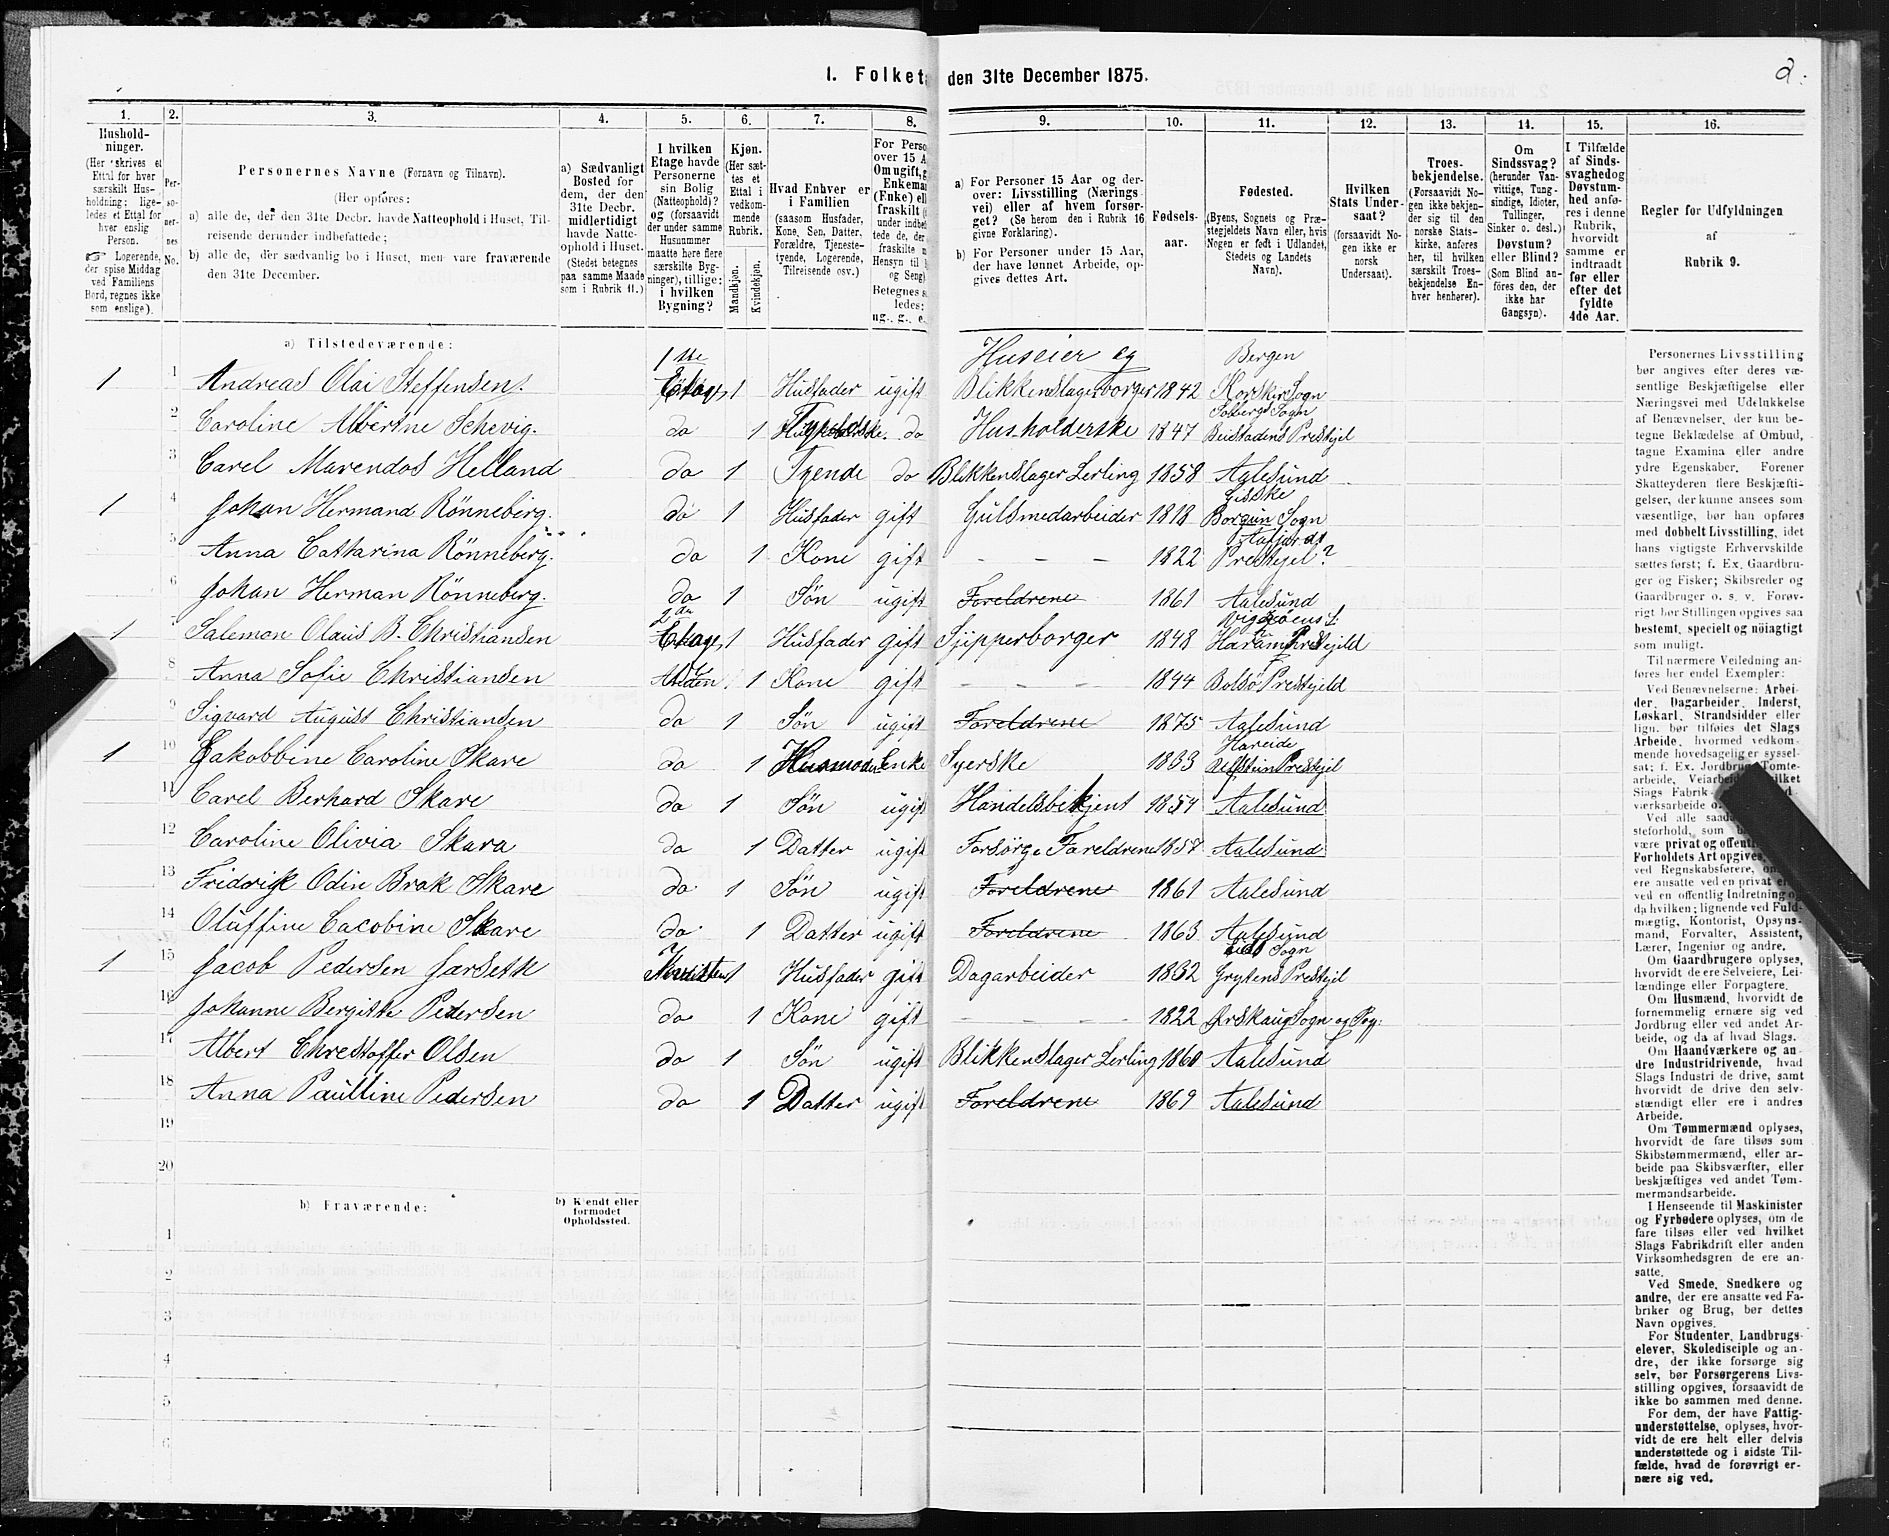 1. Folketæ
den 31te December 1875.
2.
1.
2.
3.
4.
5.
6.
7.
8.
9.
10.
11.
12.
13.
14.
15.
16.
Hushold-
ninger.
(Her skrives et
Ettal for hver
særskilt Hus-
holdning; lige-
ledes et Ettal for
hver enslig
Person.
☞ Logerende,
der spise Middag
ved Familiens
Bord, regnes ikke
som enslige).
Per-
soner-
nes
No.
Personernes Navne (Fornavn og Tilnavn).
(Her opføres:
a) alle de, der den 31te Decbr. havde Natteophold i Huset, Til-
reisende derunder indbefattede;
b) alle de, der sædvanlig bo i Huset, men vare fraværende
den 31te December.
a) Sædvanligt
Bosted for
dem, der den
31te Decbr.
midlertidigt
havde Natte-
ophold i Huset.
(Stedet betegnes
paa samme Maade
som i Rubrik 11.)
I hvilken
Etage havde
Personerne
sin Bolig
(Natteophold)?
og (forsaavidt
der under samme
Husnummer
maatte høre flere
særskilte Byg-
ninger), tillige:
i hvilken
Bygning?
Kjøn.
(Her sæt-
tes et
Ettal i
vedkom-
mende
Rubrik.
Mandkjøn.
Kvindekjøn.
Hvad Enhver er
i Familien
(saasom Husfader,
Kone, Søn, Datter,
Forældre, Tjeneste-
tyende, Logerende,
Tilreisende osv.)
For Perso
over 15 A
Om ugift, g
Enkema
(Enke) elle
fraskilt (
under indbe
tede de, der
fraskilte
Hensyn til
og Seng)
Betegnes s
ledes:
ug., g., e.
a) For Personer 15 Aar og der-
over: Livsstilling (Nærings-
vei) eller af hvem forsør-
get? (Se herom den i Rubrik 16
givne Forklaring).
b) For Personer under 15 Aar,
der have lønnet Arbeide, op-
gives dettes Art.
Fødsels-
aar.
Fødested.
(Byens, Sognets og Præ-
stegjeldets Navn eller, hvis
Nogen er født i Udlandet,
Stedets og Landets
Navn).
Hvilken
Stats Under-
saat?
(forsaavidt No-
gen ikke er
norsk
Undersaat).
Troes-
bekjendelse.
(Forsaavidt No-
gen ikke bekjen-
der sig til den
norske Stats-
kirke, anføres
her, til hvilken
særskilt Troes-
bekjendelse En-
hver henhører).
Om
Sindssvag?
(herunder Van-
vittige, Tung-
sindige, Idioter,
Tullinger,
Sinker o. desl.)
Døvstum?
eller Blind?
(Som Blind an-
føres den, der
ikke har
Gangsyn).
I Tilfælde
af Sinds-
svaghed og
Døvstum-
hed anfø-
res i denne
Rubrik,
hvorvidt
samme er
indtraadt
før eller
efter det
fyldte
4de Aar.
Regler for Udfyldningen
af
Rubrik 9.
a) Tilstedeværende:
1ste Huseier og Bergen
1 1 Andreas Olai Steffensen. Etag, 1 Husfader ugift Blikkenslagerborger 1842 Korskir Sogn
2 Caroline Albertine Schevig. do 1 Tyende do Husholderske 1847 Sogn Beistadens Prestejel
3 Carel Marendos Helland do 1 Tyende do Blikkenslager Lerling 1858 Aalesund
1 4 Johan Hermand Rönneberg. do 1 Husfader gift Gulsmedarbeider 1818 Giske Borgun Sogn
5 Anna Catharina Rönneberg. do 1 Kone gift — — 1822 Prestejel?
6 Johan Herman Rönneberg. do 1 Søn ugift Foreldrene 1861 Aalesund
1 Salemon Olaus B. Christiansen 2den Etage, 1 Husfader gift Sjipperborger 1848 Haram Prestejeld
8 Anna Sofie Christiansen 1 Kone gift — — 1844 Bolsö Prestejeld
9 Sigvard August Christiansen do 1 Søn ugift Foreldrene 1875 Aalesund
1 10 Jakobbine Caroline Skare do 1 Husmoder Enke Syerske 1833 Hareide Prestejel
11 Carel Berhard Skare do 1 Søn ugift Handelsbetjent 1854 Aalesund
12 Caroline Olivia Skara do 1 Datter ugift Forsörge Foreldrene 1857 Aalesund
13 Fridrik Odin Brak Skare do 1 Søn ugift Foreldrene 1861 Aalesund
14 Oluffine Cacobine Skare do 1 Datter ugift Foreldrene 1863 Aalesund
1 15 Jacob Pedersen Jarseth Kvisten 1 Husfader gift Dagarbeider 1832 Sogn Grytens Prestejel
16 Johanne Bergitte Pedersen do 1 Kone gift — — 1822 Ørskaug Sogn og Pg:
17 Albert Chrestoffer Olsen do 1 Søn ugift Blikkenslager Lerling 1860 Aalesund
18 Anna Paulline Pedersen do 1 Datter ugift Foreldrene 1869 Aalesund
19
20
b) Fraværende:
b) Kjendt eller
formodet
Opholdssted.
1
2
3
4
5
6
Personernes Livsstilling
bør angives efter deres væ-
sentlige Beskjæftigelse eller
Næringsvei med Udelukkelse
af Benævnelser, der kun be-
tegne Beklædelse af Ombud,
tagne Examina eller andre
ydre Egenskaber. Forener
Skatteyderen flere Beskjæfti-
gelser, der kunne ansees som
væsentlige, bør han opføres
med dobbelt Livsstilling, idet
hans vigtigste Erhvervskilde
sættes først; f. Ex. Gaardbru-
ger og Fisker; Skibsreder og
Gaardbruger o. s. v. Forøv-
rigt bør Stillingen opgives saa
bestemt, specielt og nøiagtigt
som muligt.
Til nærmere Veiledning an-
føres her endel Exempler:
Ved Benævnelserne: Arbei-
der, Dagarbeider, Inderst,
Løskarl, Strandsidder eller
lign. bør tilføies det Slags
Arbeide, hvormed vedkom-
mende hovedsagelig er syssel-
sat; f. Ex. Jordbrug, Tomte-
arbeide, Veiarbeide, hvilket
Slags Fabrik-
værksarbeide o.
Ved alle saad
steforhold, som
være privat og offentl
Forholdets Art opgives,
ved Regnskabsførere,
ere ansatte ved en privat el
ved en offentlig Indretning og
da hvilken; lignende ved Fuld-
mægtig, Kontorist, Opsyns-
mand, Forvalter, Assistent,
Lærer, Ingeniør og andre.
Om Gaardbrugere oplyses,
hvorvidt de ere Selveiere, Lei-
lændinge eller Forpagtere.
Om Husmænd, hvorvidt de
fornemmelig ernære sig ved
Jordbrug eller ved andet Ar-
beide, og da af hvad Slags.
Om Haandværkere og an-
dre Industridrivende, hvad
Slags Industri de drive, samt
hvorvidt de drive den selv-
stændigt eller ere i andres
Arbeide.
Om Tømmermænd oplyses,
hvorvidt de fare tilsøs som
Skibstømmermænd, eller ar-
beide paa Skibsværfter, eller
beskjæftiges ved andet Tøm-
mermandsarbeide.
I Henseende til Maskinister
og Fyrbødere oplyses, om de
fare tilsøs eller ved hvilket
Slags Fabrikdrift eller anden
Virksomhedsgren de ere an-
satte.
Ved Smede, Snedkere og
andre, der ere ansatte ved Fa-
briker og Brug, bør dettes
Navn opgives.
For Studenter, Landbrugs-
elever, Skoledisciple og an-
dre, der ikke forsørge sig
selv, bør Forsørgerens Livs-
stilling opgives, forsaavidt de
ikke bo sammen med denne.
For dem, der have Fattig-
understøttelse, oplyses, hvor-
vidt de ere helt eller delvis
understøttede og i sidste Til-
fælde, hvad de forøvrigt er-
nære sig ved.